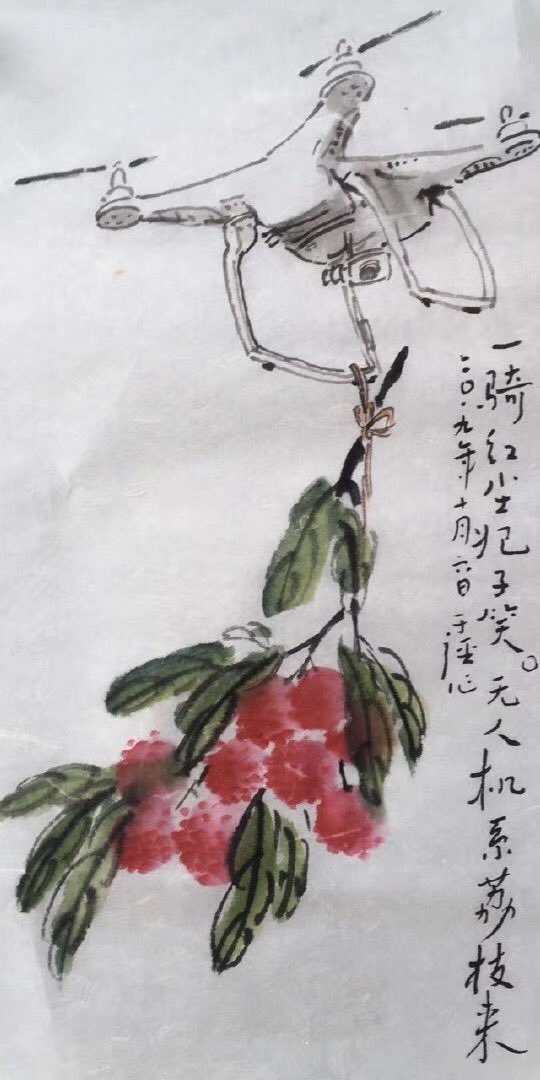 一骑红尘妃子笑。无人机系荔枝来
二〇一九年十月六日于